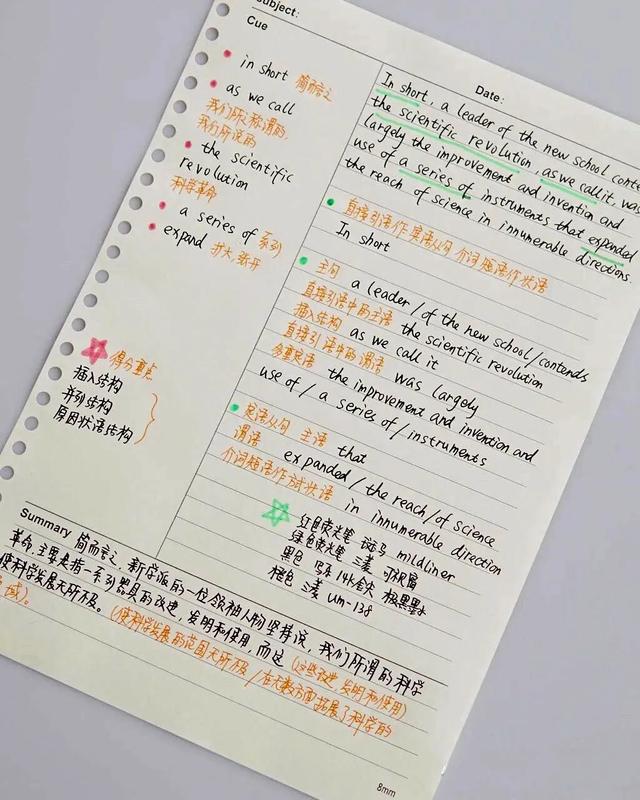 Subject:
Cue
in short 简而言之
as we call
我们所称谓的,
我们所说的
the scientific
revolution
科学革命
a series of 系列
expand 扩大,扩开
得分重点
插入结构
并列结构
原因状语结构
Date:
In short, a leader of the new school conte
the scientific revolution as we call it, was
largely the improvement and invention and
use of a series of instruments that expanded
the reach of science in innumerable directions.
直接引语作宾语从句 介词短语作状语
In short
主句 a leader/of the new school/contends
直接引语中的主语 the scientific revolution
插入结构 as we call it
直接引语中的谓语 was largely
多重定语 the improvement and invention and
use of / a series of / instruments
定语从句 主语 that
谓语 expanded/the reach/of science
介词短语作方式状语 in innumerable direction
红色荧光笔 斑马 mildliner
绿色荧光笔 三菱 可视窗
黑色 写乐 14k金尖 极黑墨水
橙色 三菱 um-138
Summary 简而言之,新学派的一位领袖人物坚持说,我们所谓的科学
革命,主要是指一系列器具的改进,发明和使用,而这(这些改进,发明和使用)
使科学发展无所极。(使科学发展的范围无所极/在无数方面拓展了科学的
域)。
8mm